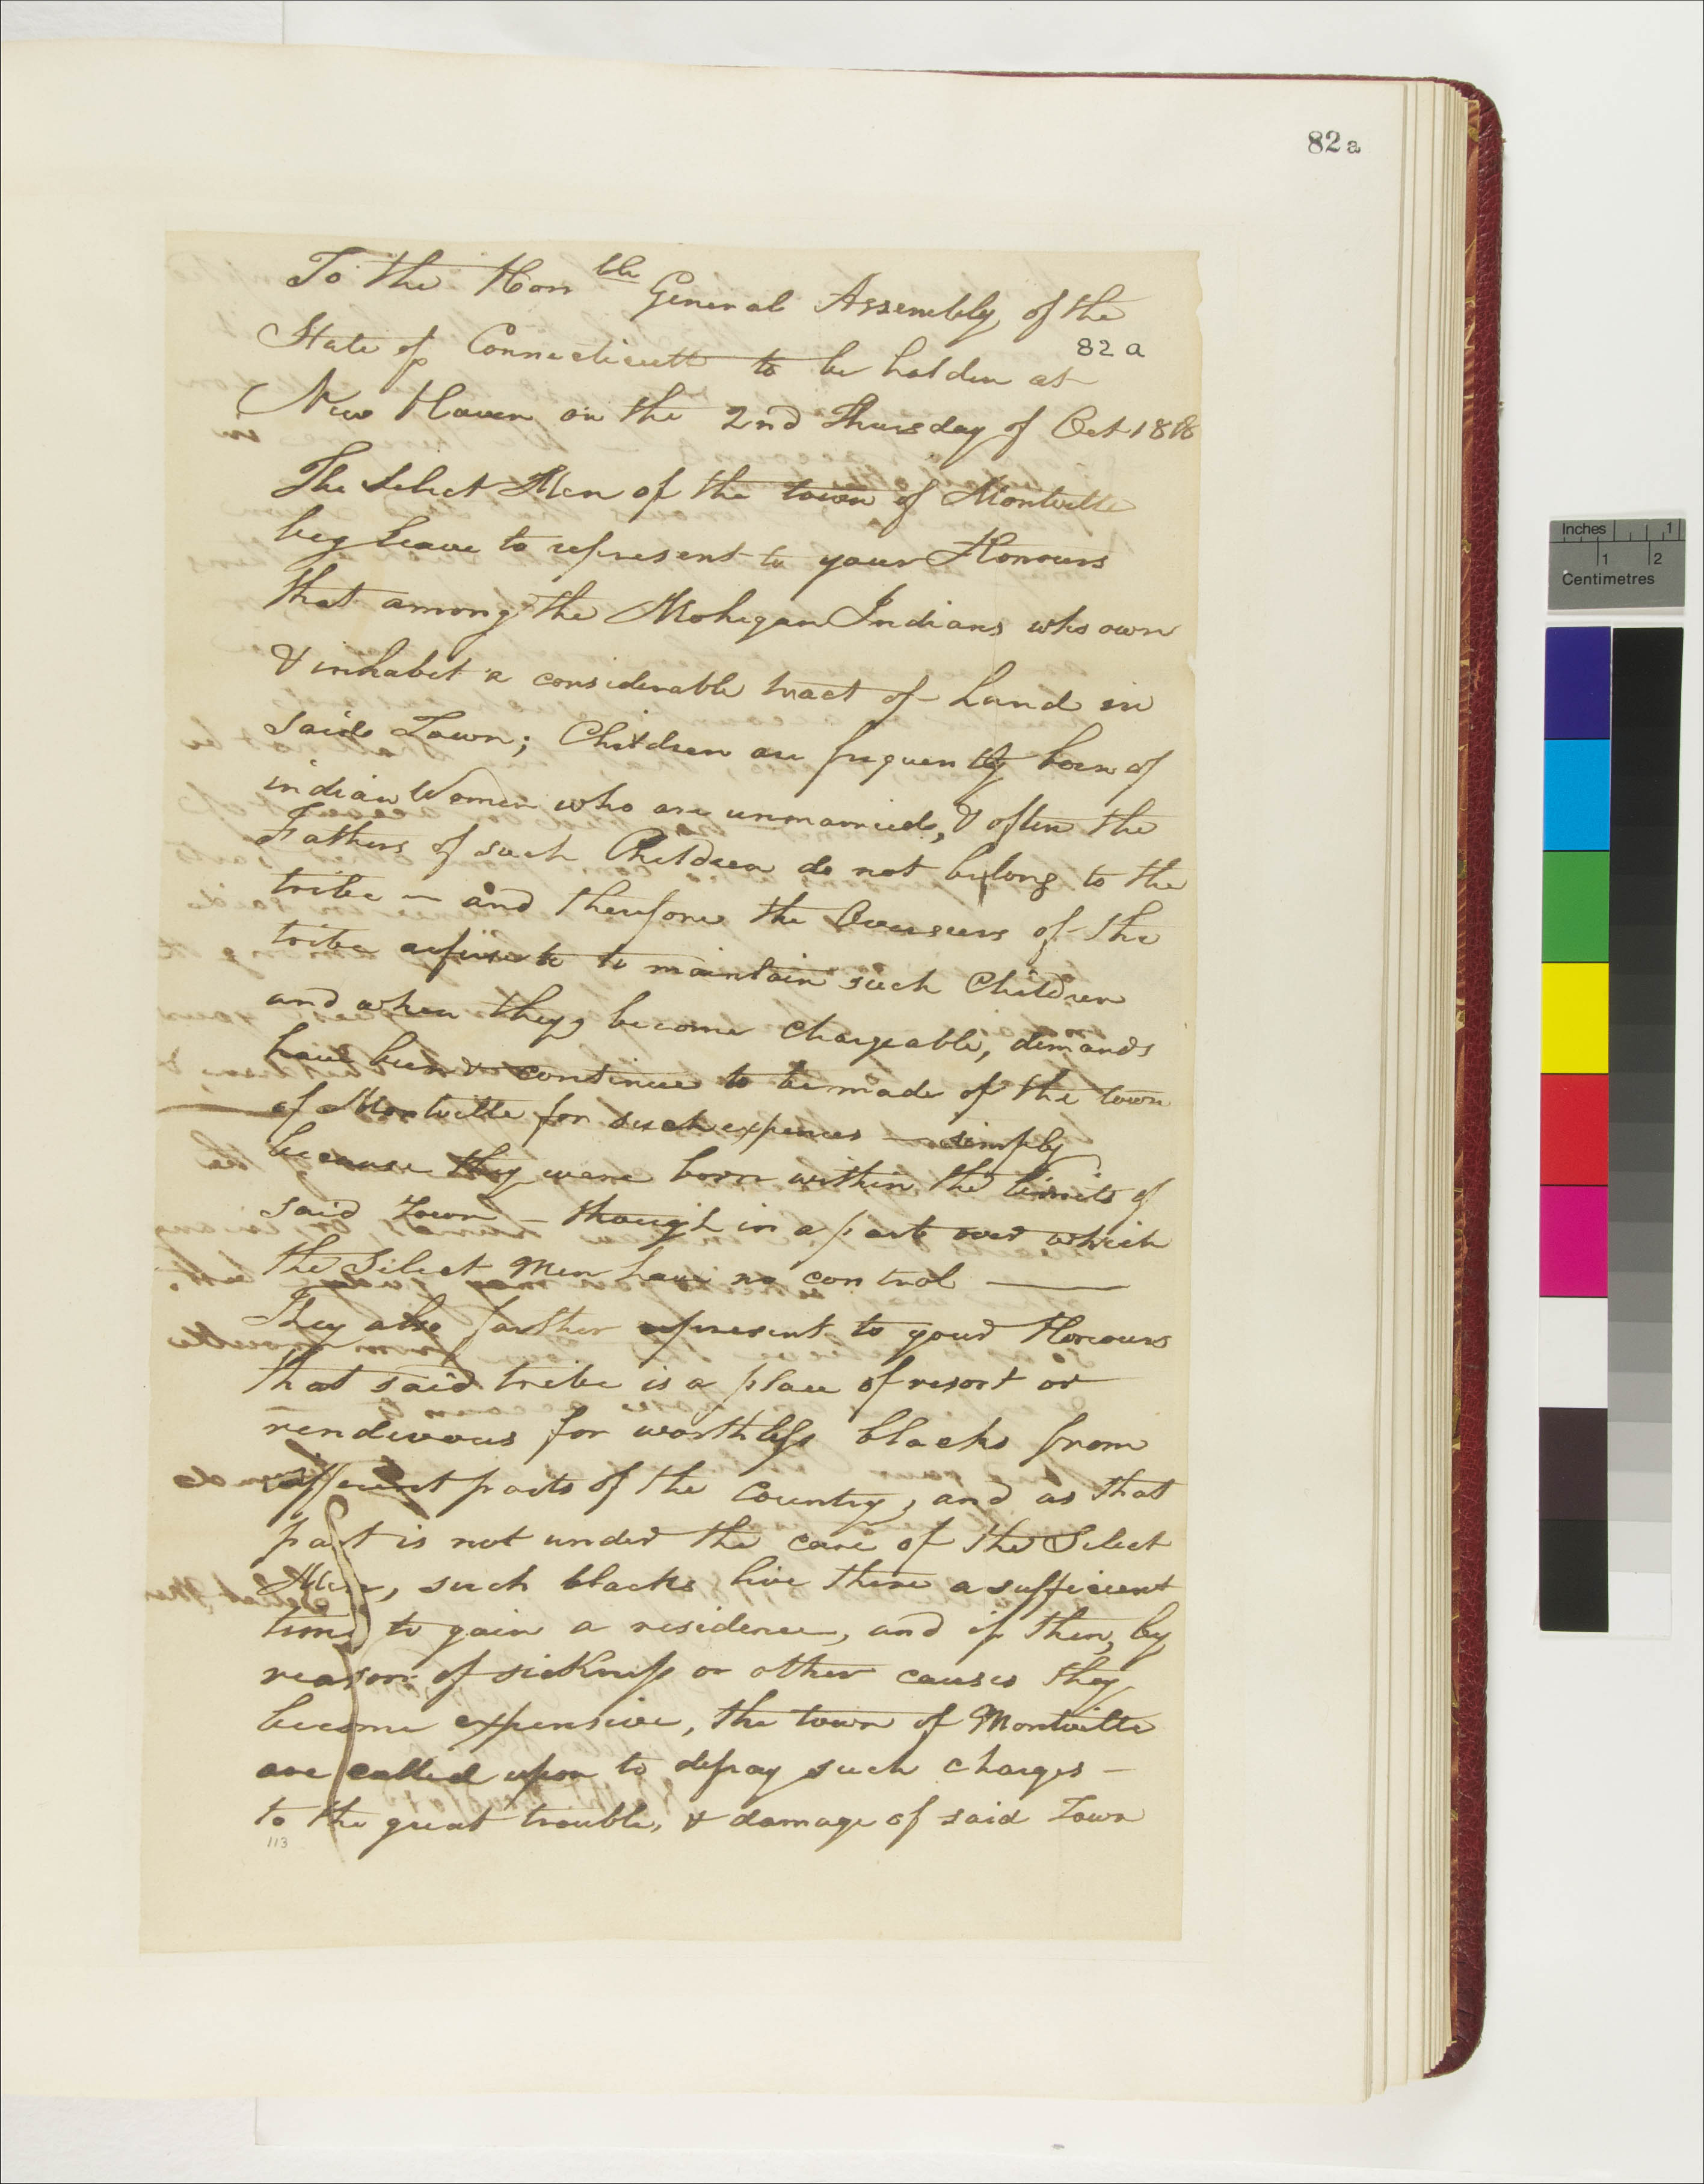 82 a
To the Hon ble General Assembly of the
State of Connecticutt to be holden at
82 a
New Haven on the 2nd Thursday of Oct 1818
The Select Men of the town of Montville
beg leave to represent to your Honours
that among the Mohegan Indians who own
& inhabit a considerable tract of Land in
said Town; Children are frequently born of
indian Women who are unmarried, & often the
Fathers of such Children do not belong to the
tribe — and therefore the Overseers of the
tribe refuse to maintain such Children
and when they become Chargeable, demands
have been & continue to be made of the town
of Montville for such expences — simply
because they were born within the limits of
said Town — though in a part over which
the Select Men have no control —
They also farther represent to your Honours
that said tribe is a place of resort or
rendivous for worthless blacks from
different parts of the Country, and as that
part is not under the care of the Select
Men, such blacks live there a sufficient
time to gain a residence, and if then, by
reason of sickness or other causes they
become expensive, the town of Montville
are called upon to defray such charges —
to the great trouble, & damage of said Town
113
Inches 1
1 2
Centimetres